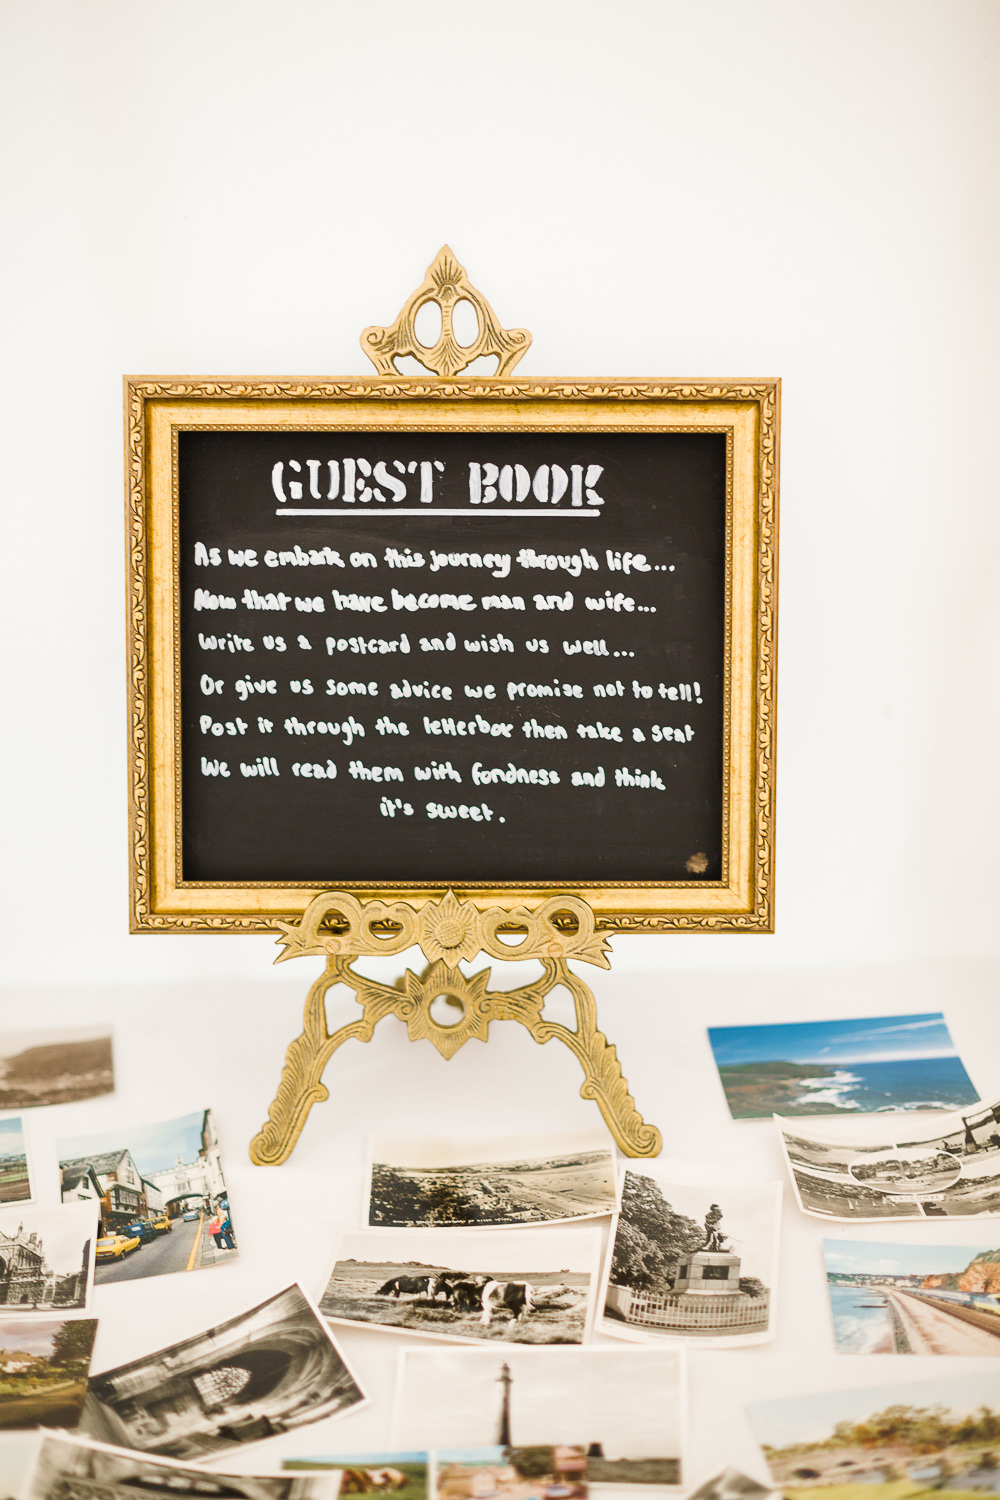 GUEST BOOK
As we embark on this journey through life...
Now that we have become man and wife...
Write us a postcard and wish us well...
Or give us some advice we promise not to tell!
Post it through the letterbox then take a seat
We will read them with fondness and think
it's sweet.